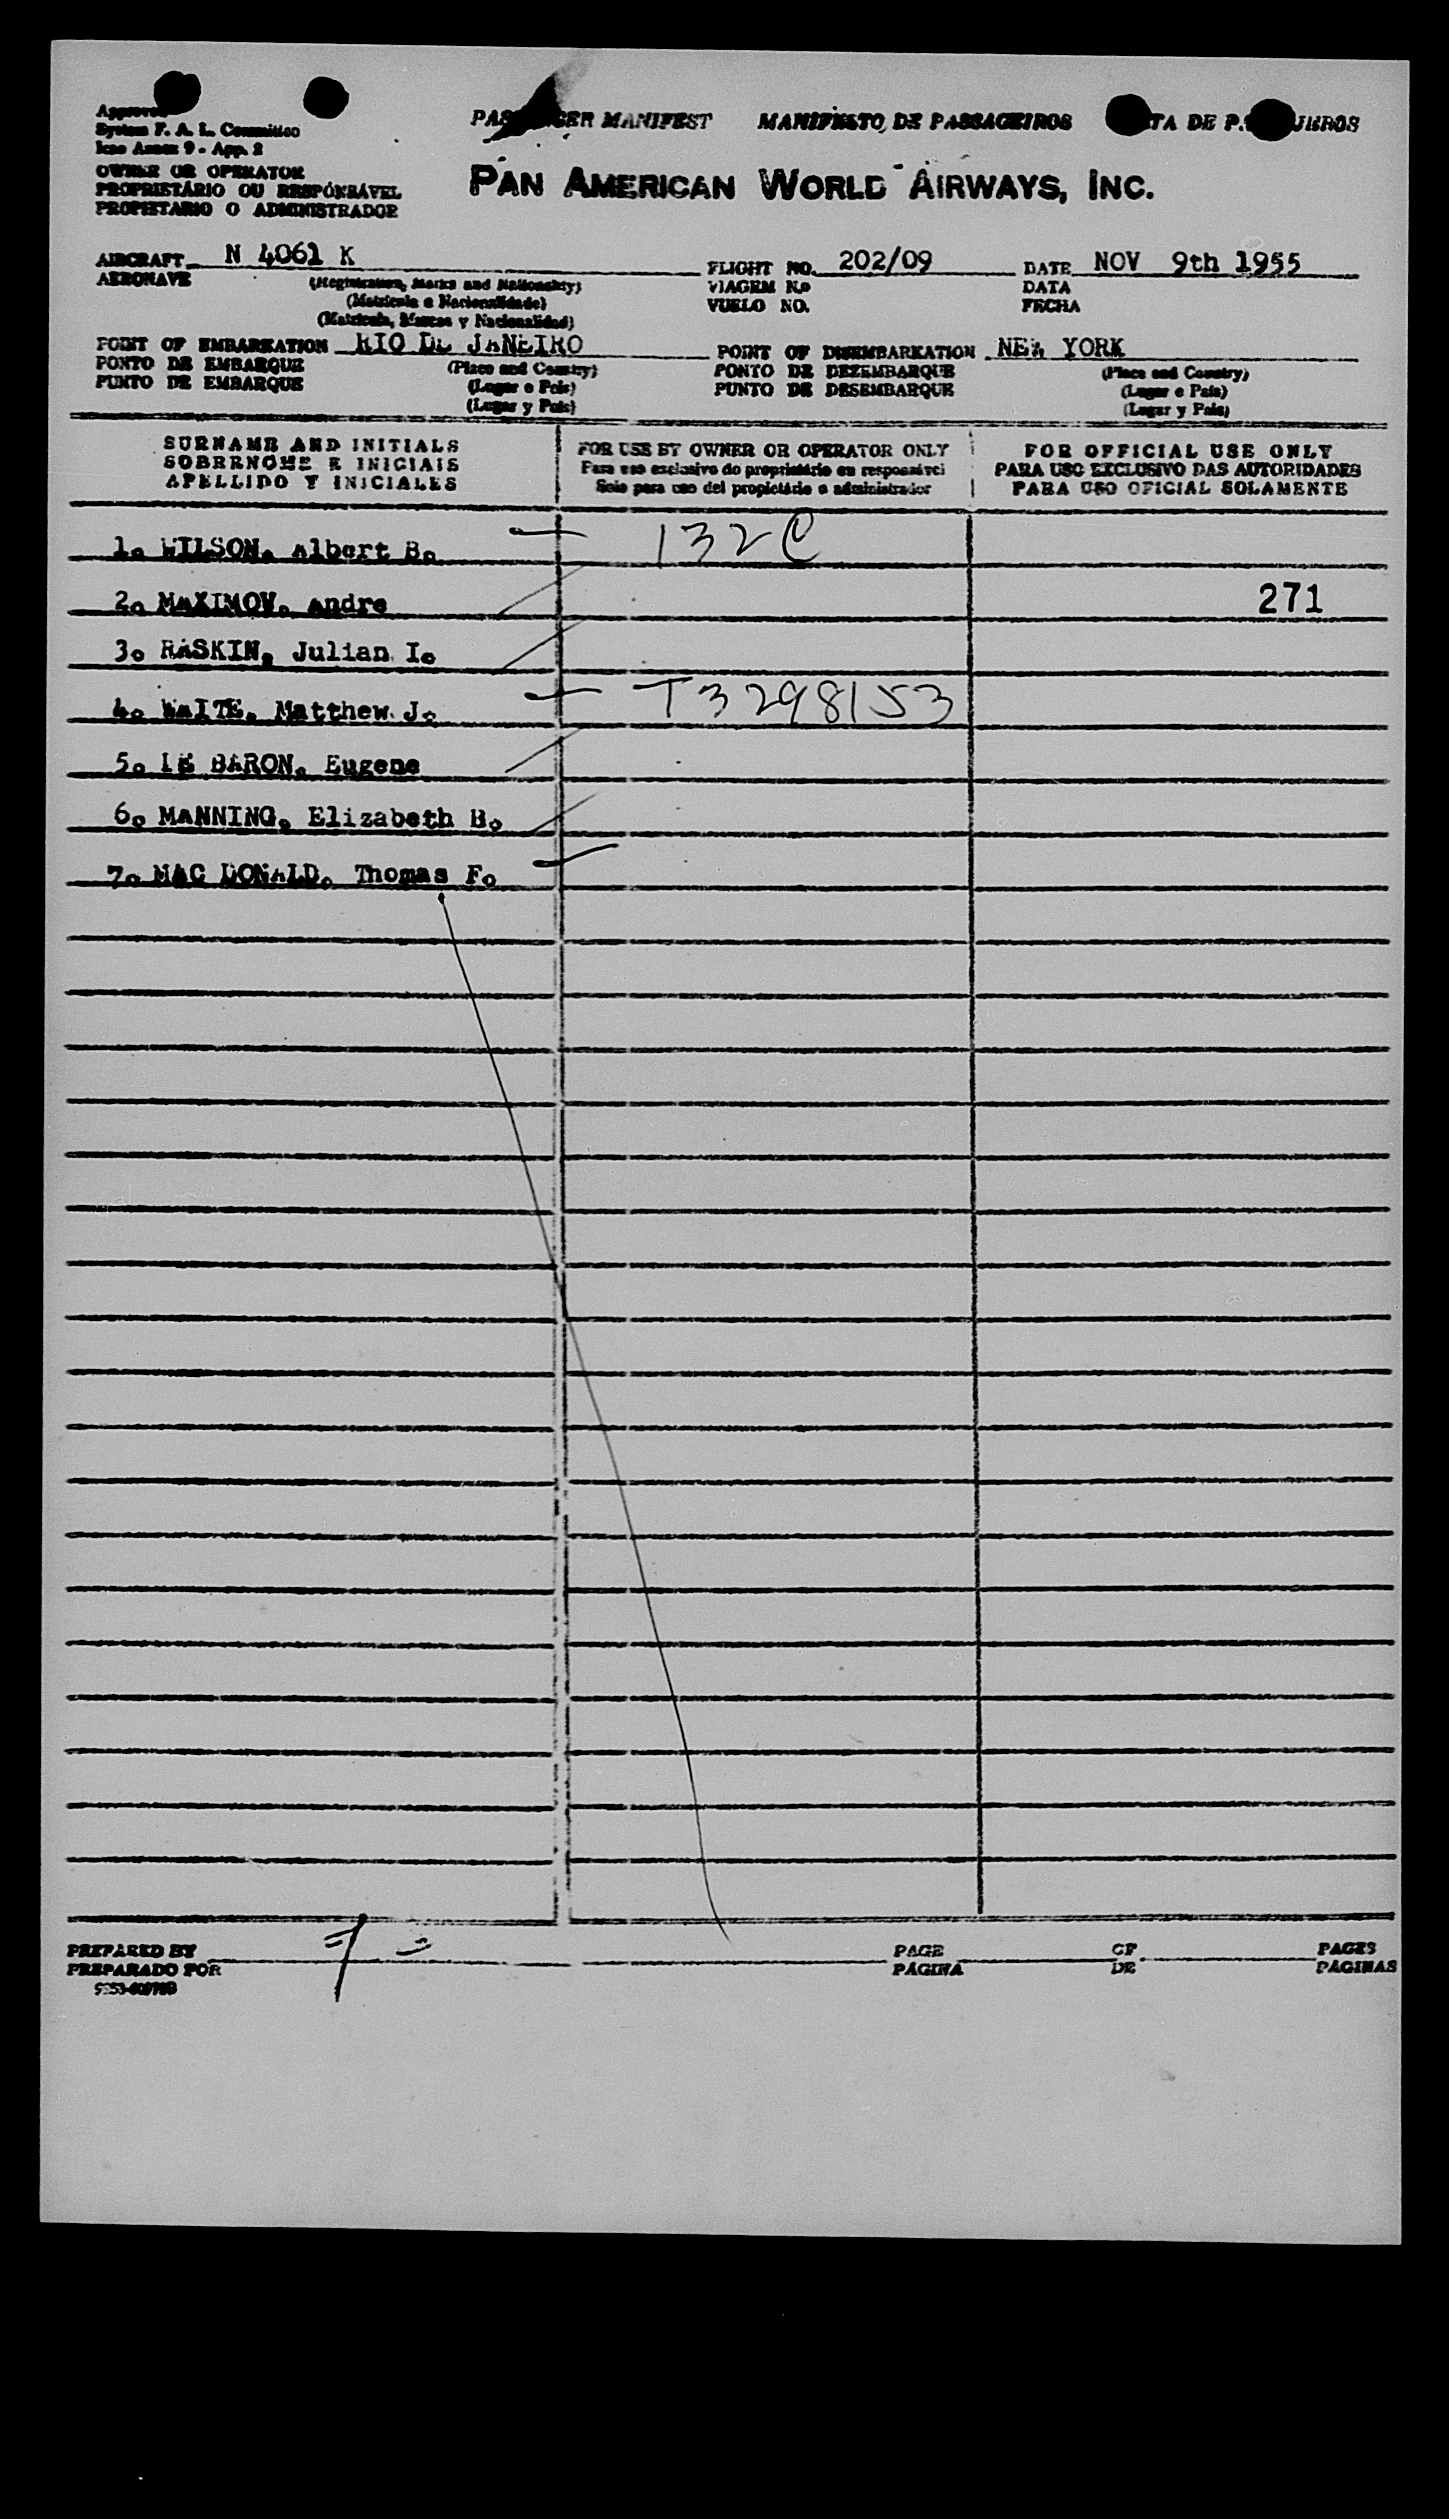 Approved
System F. A. L. Committee
Icao Annex 9 - App. 2
OWNER OR OPERATOR
PROPRIETÁRIO OU RESPONSÁVEL
PROPIETARIO O ADMINISTRADOR
PASSENGER MANIFEST MANIFESTO DE PASSAGEIROS LISTA DE PASAJEROS
PAN AMERICAN WORLD AIRWAYS, INC.
AIRCRAFT N 4061 K FLIGHT NO. 202/09 DATE NOV 9th 1955
AERONAVE (Registration, Marks and Nationality) VIAGEM N.o DATA
(Matrícula e Nacionalidade) VUELO NO. FECHA
(Matrícula, Marcas y Nacionalidad)
POINT OF EMBARKATION RIO DE JANEIRO POINT OF DISEMBARKATION NEW YORK
PONTO DE EMBARQUE (Place and Country) PONTO DE DEZEMBARQUE (Place and Country)
PUNTO DE EMBARQUE (Lugar e País) PUNTO DE DESEMBARQUE (Lugar e País)
(Lugar y País) (Lugar y País)
SURNAME AND INITIALS FOR USE BY OWNER OR OPERATOR ONLY FOR OFFICIAL USE ONLY
SOBRENOME E INICIAIS Para uso exclusivo do proprietário ou responsável PARA USO EXCLUSIVO DAS AUTORIDADES
APELLIDO Y INICIALES Solo para uso del propietário o administrador PARA USO OFICIAL SOLAMENTE
1. WILSON, Albert B. 132C
2. MAXIMOV, Andre 271
3. RASKIN, Julian I.
4. WAITE, Matthew J. T3298153
5. LE BARON, Eugene
6. MANNING, Elizabeth B.
7. MAC DONALD, Thomas F.
PREPARED BY =7= PAGE OF PAGES
PREPARADO POR PAGINA DE PAGINAS